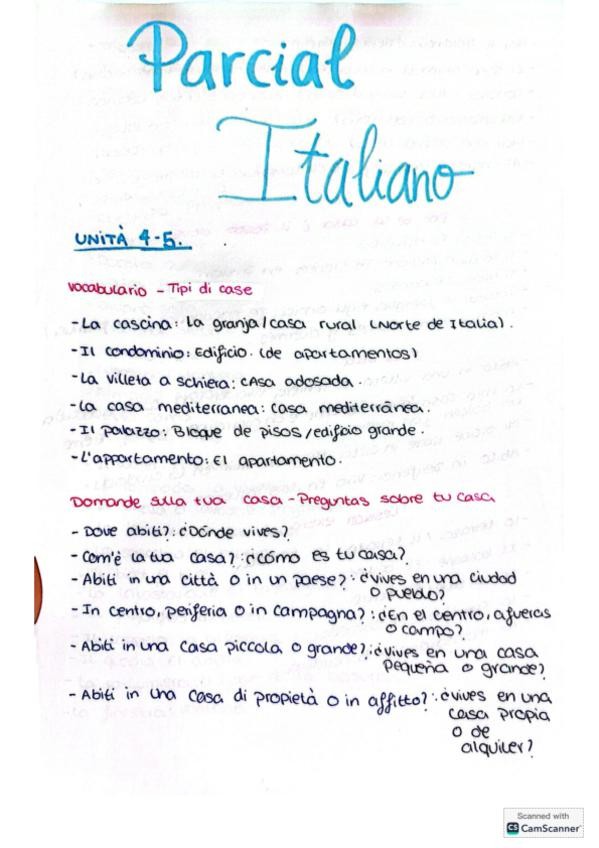 Parcial
Italiano
UNITÀ 4-5.
Vocabulario - Tipi di case
- La cascina: La granja/casa rural (Norte de Italia).
- Il condominio: Edificio. (de apartamentos)
- La villeta a schiera: casa adosada.
- La casa mediterranea: casa mediterránea.
- Il palazzo: Bloque de pisos/edificio grande.
- L'appartamento: El apartamento.
Domande sulla tua casa - Preguntas sobre tu casa
- Dove abiti?: ¿Dónde vives?
- Com'è la tua casa?: ¿Cómo es tu casa?
- Abiti in una città o in un paese?: ¿vives en una ciudad
o pueblo?
- In centro, periferia o in campagna?: ¿En el centro, afueras
o campo?
- Abiti in una casa piccola o grande?: ¿vives en una casa
pequeña o grande?
- Abiti in una casa di propietà o in affitto?: ¿vives en una
casa propia
o de
alquiler?
Scanned with
CS CamScanner